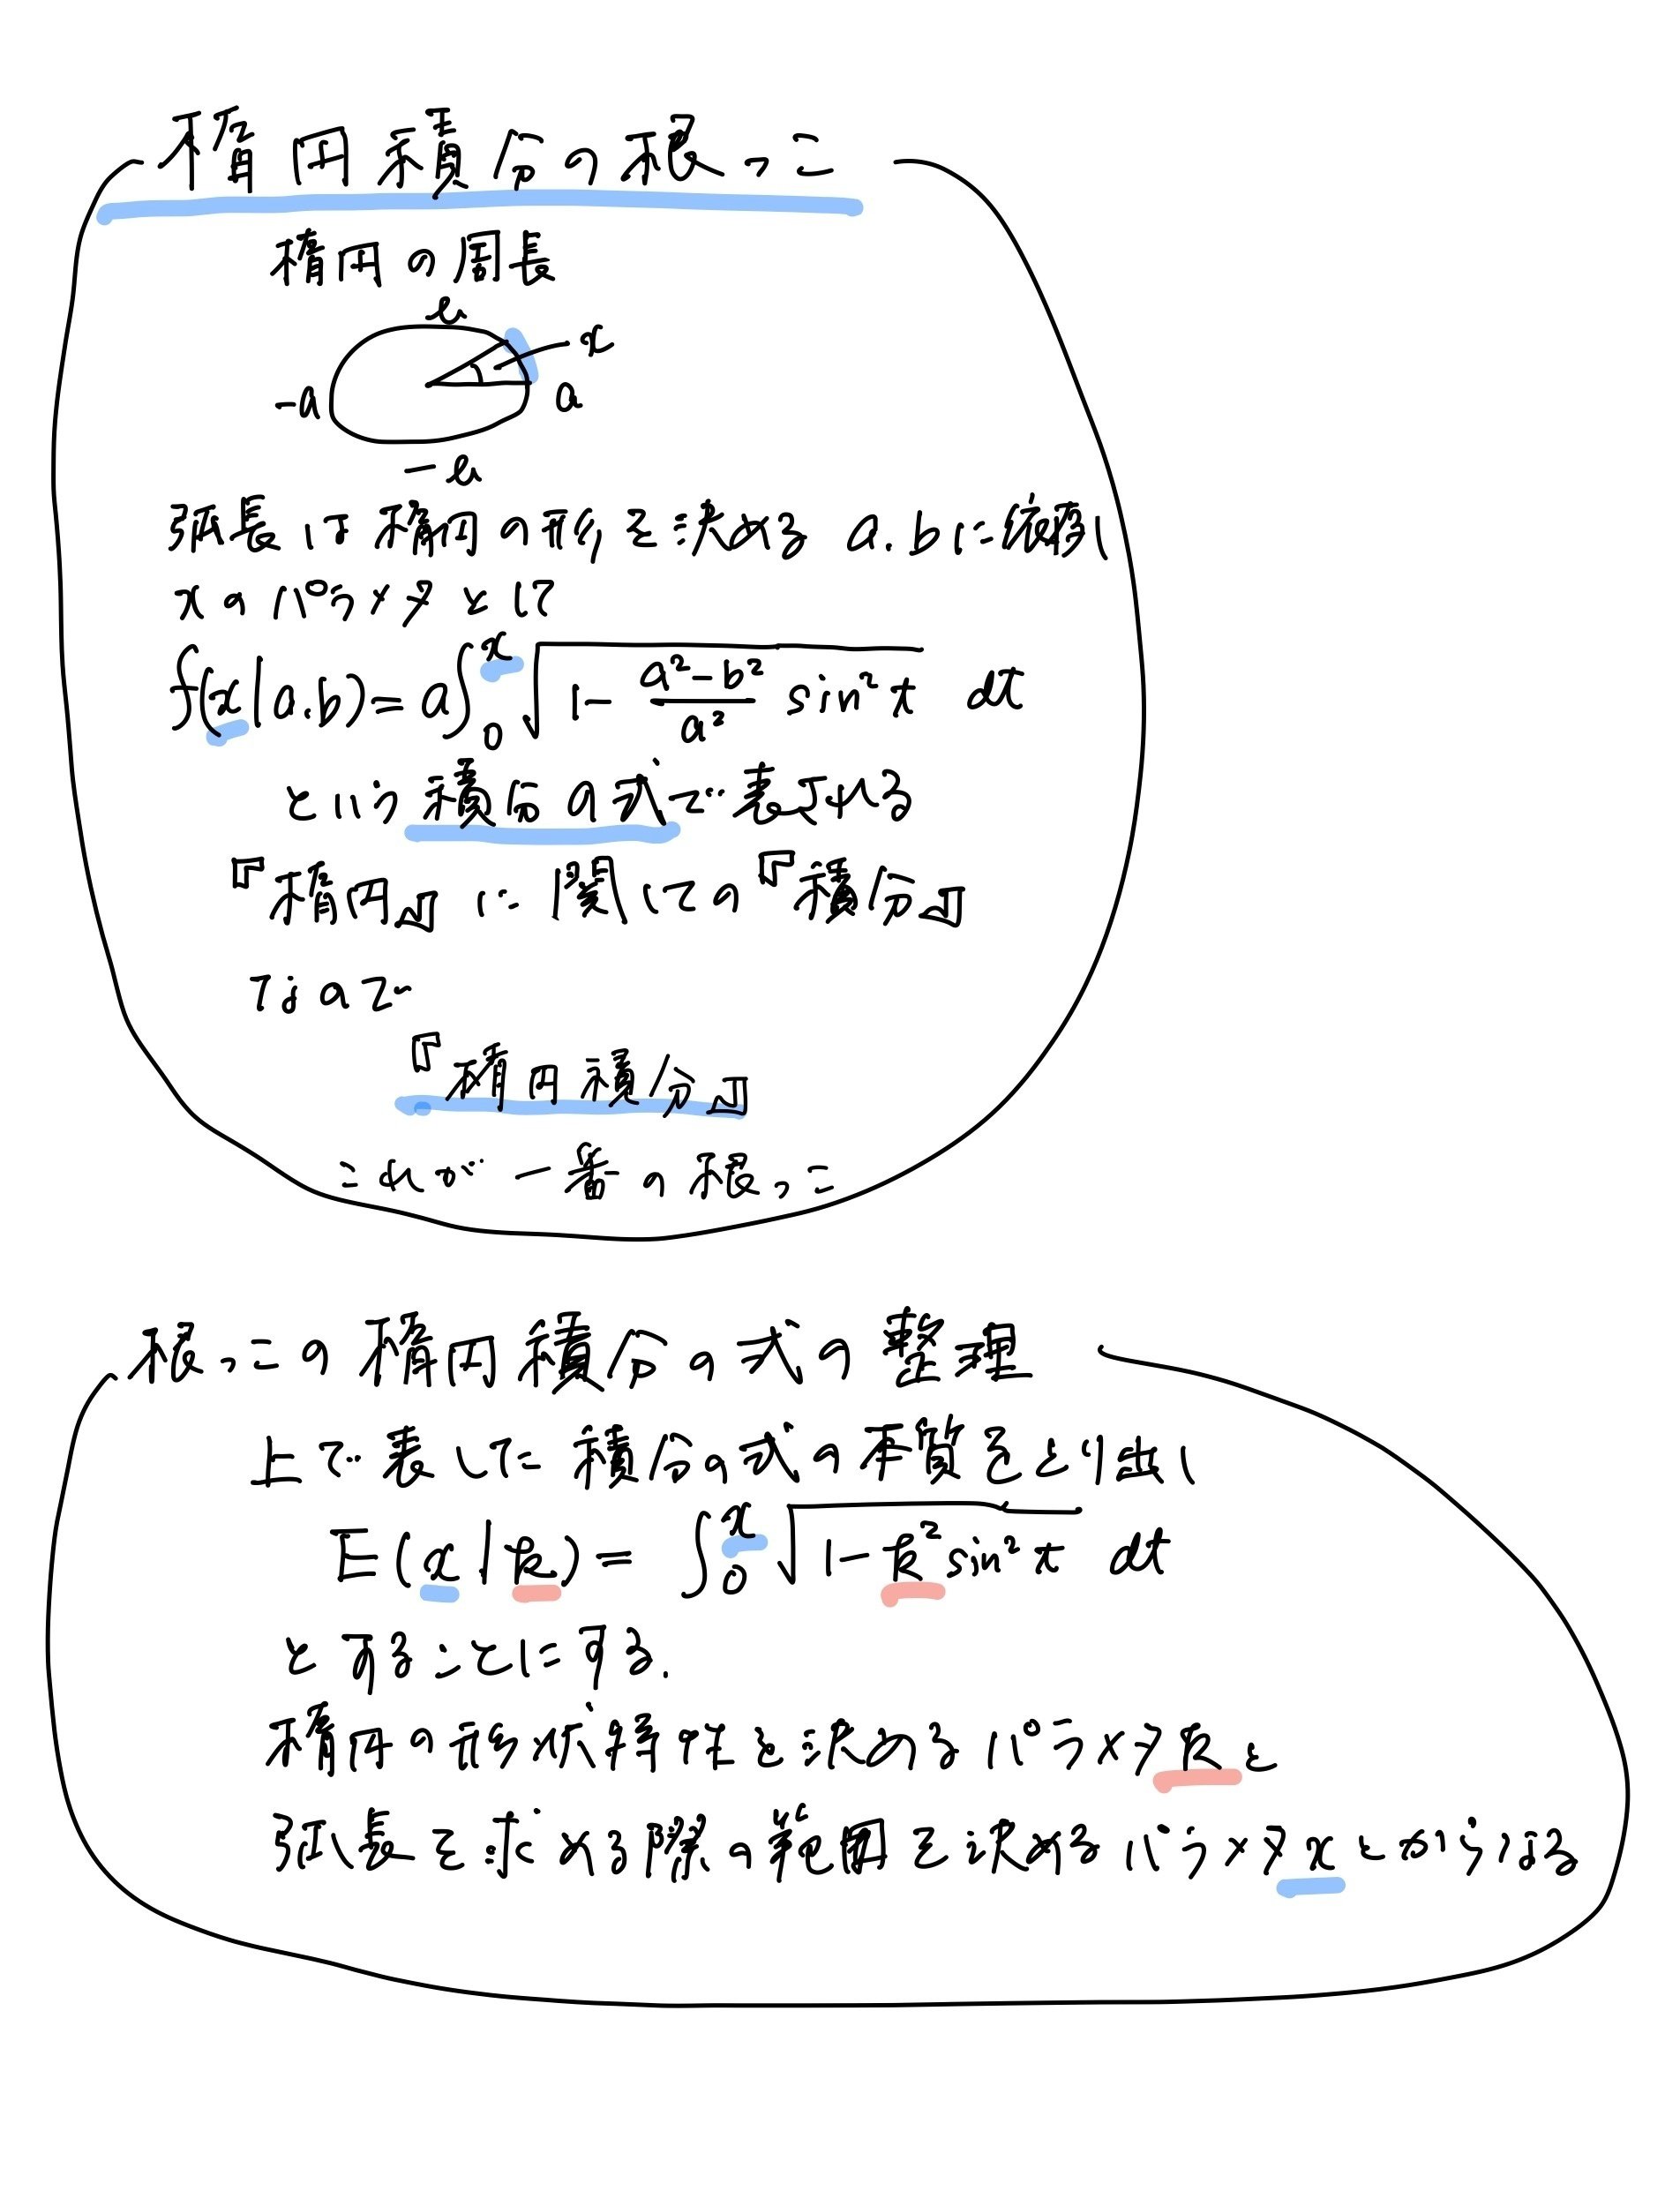 楕円積分の根っこ
楕円の周長
b
x
-a
a
-b
弧長は楕円の形を決めるa.bに依存し
xのパラメタとして
f(x|a.b)=a∫₀ˣ√(1-(a²-b²)/a² sin²t) dt
という積分の式で表される
『楕円』に関しての『積分』
なので
『楕円積分』
これが一番の根っこ
根っこの楕円積分の式の整理
上で表した積分の式の本質をとり出し
E(x|k)=∫₀ˣ√(1-k²sin²t) dt
とすることにする.
楕円の形状特性を決めるパラメタkと
弧長を求める際の範囲を決めるパラメタxとからなる